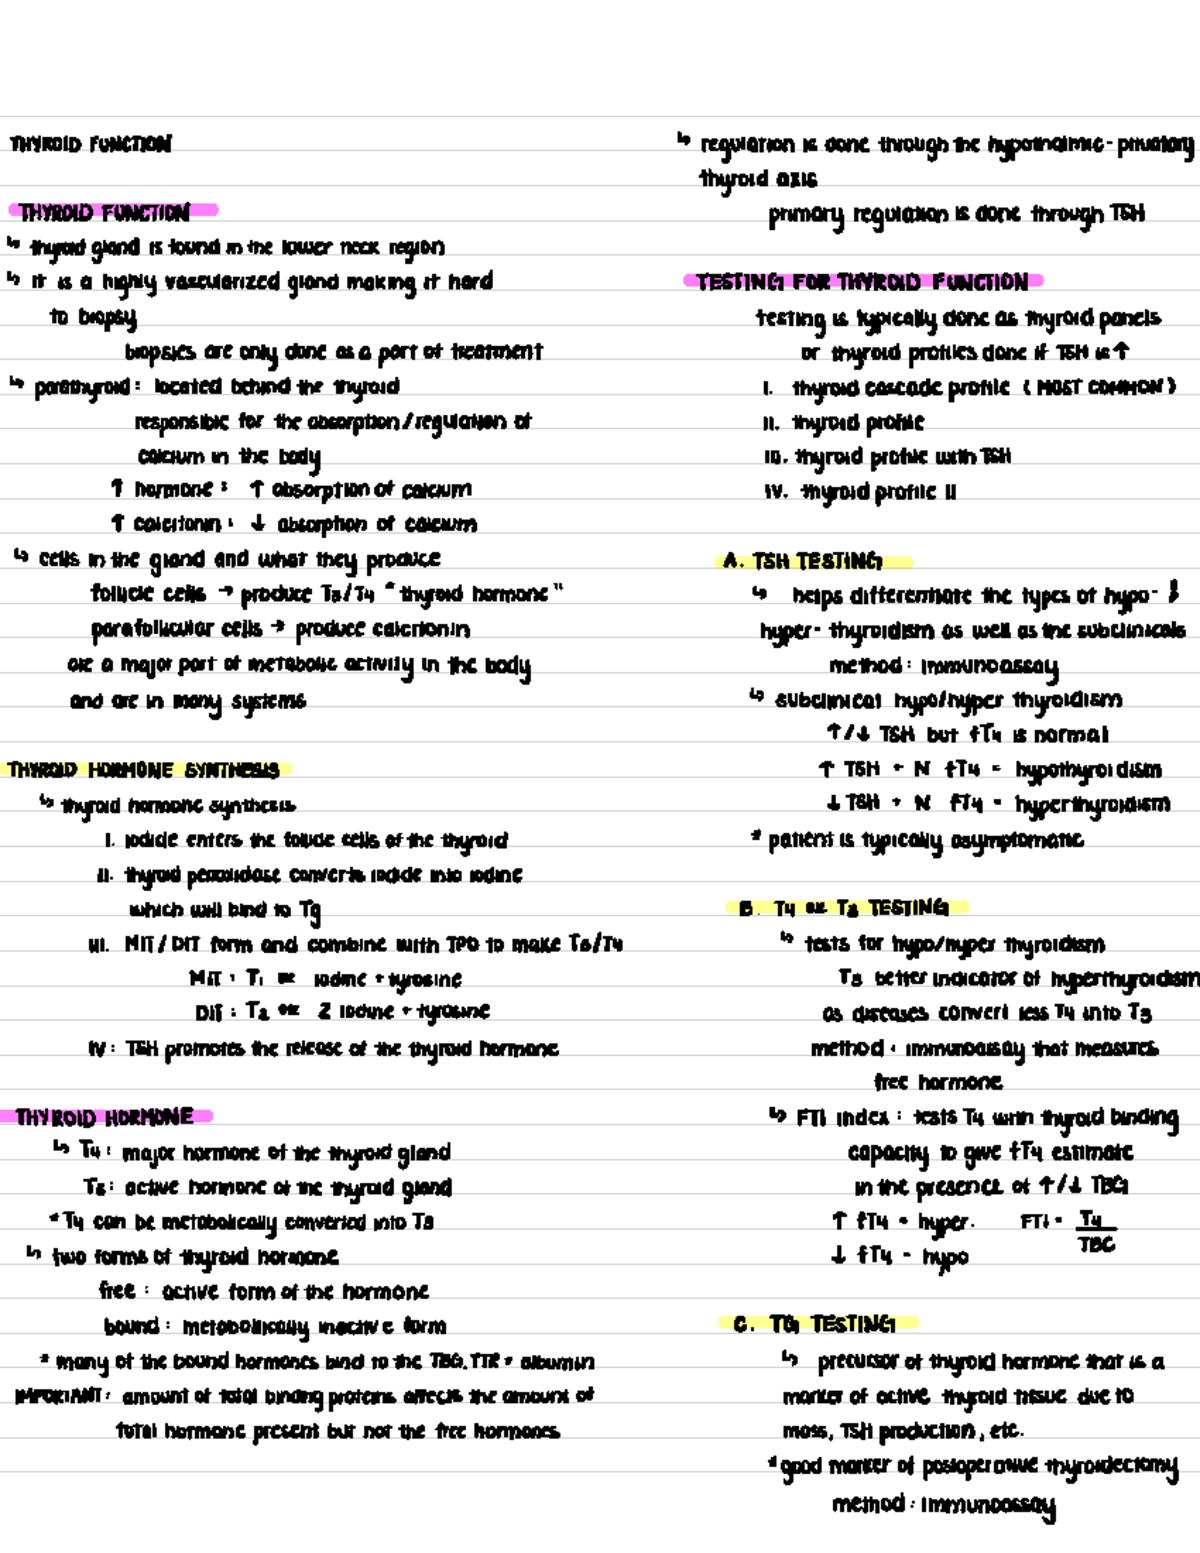 THYROID FUNCTION
THYROID FUNCTION
↳ thyroid gland is found in the lower neck region
↳ it is a highly vascularized gland making it hard
to biopsy
biopsies are only done as a part of treatment
↳ parathyroid: located behind the thyroid
responsible for the absorption/regulation of
calcium in the body
↑ hormone: ↑ absorption of calcium
↑ calcitonin: ↓ absorption of calcium
↳ cells in the gland and what they produce
follicle cells → produce T3/T4 "thyroid hormone"
parafollicular cells → produce calcitonin
are a major part of metabolic activity in the body
and are in many systems
THYROID HORMONE SYNTHESIS
↳ thyroid hormone synthesis
I. iodide enters the follicle cells of the thyroid
II. thyroid peroxidase converts iodide into iodine
which will bind to Tg
III. MIT/DIT form and combine with TPO to make T3/T4
MIT: T1 or iodine + tyrosine
DIT: T2 or 2 iodine + tyrosine
IV: TSH promotes the release of the thyroid hormone
THYROID HORMONE
↳ T4: major hormone of the thyroid gland
T3: active hormone of the thyroid gland
* T4 can be metabolically converted into T3
↳ two forms of thyroid hormone
free: active form of the hormone
bound: metabolically inactive form
* many of the bound hormones bind to the TBG, TTR + albumin
IMPORTANT: amount of total binding proteins affects the amount of
total hormone present but not the free hormones
↳ regulation is done through the hypothalmic-pituatary
thyroid axis
primary regulation is done through TSH
TESTING FOR THYROID FUNCTION
testing is typically done as thyroid panels
or thyroid profiles done if TSH is ↑
I. thyroid cascade profile (MOST COMMON)
II. thyroid profile
III. thyroid profile with TSH
IV. thyroid profile II
A. TSH TESTING
↳ helps differentiate the types of hypo-
hyper-thyroidism as well as the subclinicals
method: immunoassay
↳ subclinical hypo/hyper thyroidism
↑/↓ TSH but fT4 is normal
↑ TSH + N fT4 = hypothyroidism
↓ TSH + N fT4 = hyperthyroidism
* patient is typically asymptomatic
B. T4 or T3 TESTING
↳ tests for hypo/hyper thyroidism
T3 better indicator of hyperthyroidism
as diseases convert less T4 into T3
method: immunoassay that measures
free hormone
↳ FTI index: tests T4 with thyroid binding
capacity to give fT4 estimate
in the presence of ↑/↓ TBG
↑ fT4 = hyper. FTI = T4/TBC
↓ fT4 = hypo
C. TG TESTING
↳ precursor of thyroid hormone that is a
marker of active thyroid tissue due to
mass, TSH production, etc.
* good marker of postoperative thyroidectomy
method: immunoassay